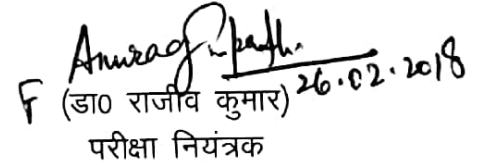 Anurag Tripathi.
26.02.2018
F (डा0 राजीव कुमार)
परीक्षा नियंत्रक